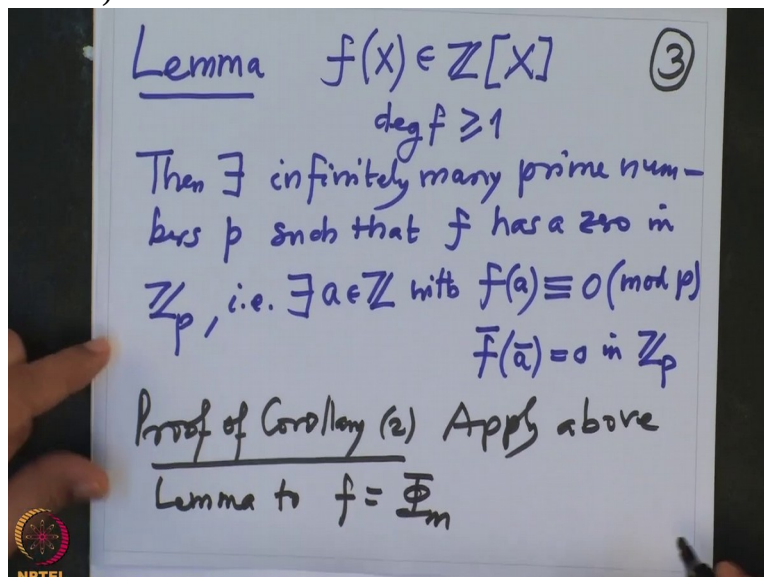 Lemma f(X) ∈ ℤ[X] ③
deg f ⩾ 1
Then ∃ infinitely many prime num-
bers p such that f has a zero in
ℤₚ, i.e. ∃ a ∈ ℤ with f(a) ≡ 0 (mod p)
f̄(ā) = 0 in ℤₚ
Proof of Corollary (2) Apply above
Lemma to f = Φₘ
NPTEL